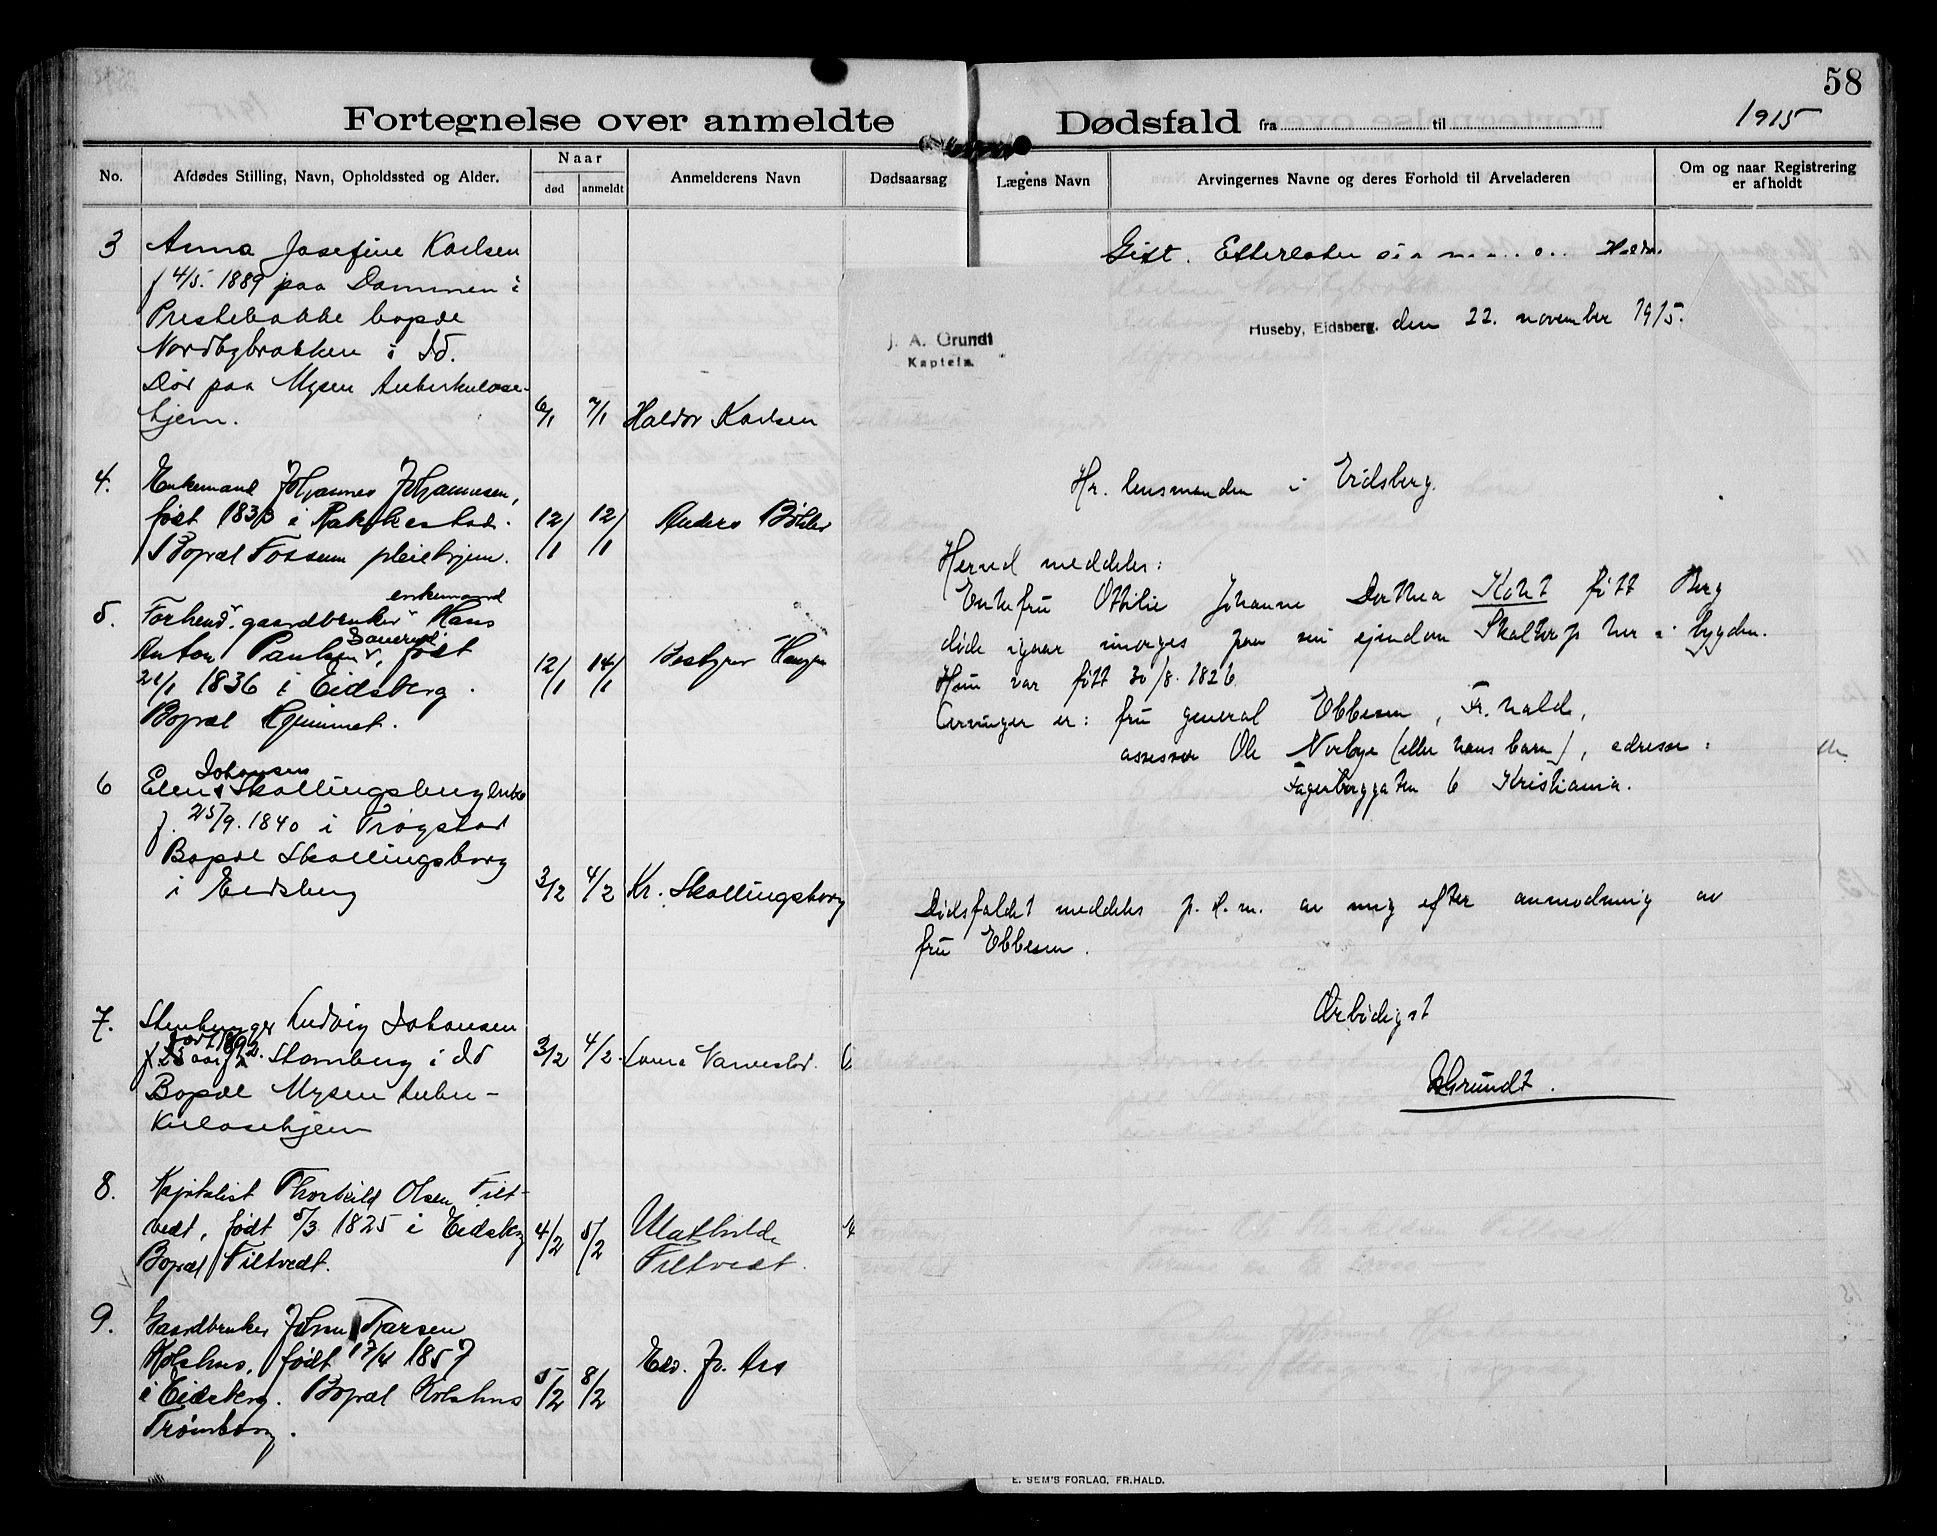 58
1915
Fortegnelse over anmeldte Dødsfald fra til
No.
Afdødes Stilling, Navn, Opholdssted og Alder.
Naar
død
anmeldt
Anmelderens Navn
Dødsaarsag
Lægens Navn
Arvingernes Navne og deres Forhold til Arveladeren
Om og naar Registrering
er afholdt
3
Anna Josefine Karlsen
f 4/5. 1889 paa Dammen i
Prestebakke bopæl
Nordbybrakken i Id.
Død paa Mysen tuberkulose-
hjem.
6/1 7/1 Haldor Karlsen
Gift. Efterlater
4.
Enkemand Johannes Johannesen,
født 1833 i Rakkestad.
Bopæl Fossum pleiehjem.
12/1 12/1 Anders
5.
enkemand
Forhenv. gaardbruker Hans
Anton Paulsen født
21/1 1836 i Eidsberg.
Bopæl Hjemmet.
12/1 14/1 Bestyrer
6
Johansen
Elen Skallingsberg enke
f. 25/9. 1840 i Trøgstad
Bopæl Skallingsberg
i Eidsberg
3/2 4/2 Kr. Skallingsberg
7.
Stenhugger Ludvig Johansen
født 1892
Stomberg i Id
Bopæl Mysen tuber-
kulosehjem
3/2 4/2.
8.
Kapitalist Thorkild Olsen Tilt-
vedt, født 5/3 1825 i Eidsberg
Bopæl Tiltvedt.
4/2 5/2 Mathilde
Tiltvedt.
9.
Gaardbruker Johan Larsen
Kolshus, født 17/4 1857
i Eidsberg. Bopæl Kolshus
Trømborg.
5/2 8/2
J. A. Grundt
Kaptein.
Huseby, Eidsberg, den 22. november 1915.
Hr. lensmanden i Eidsberg.
Herved meddeles:
Enkefru Ottilie Johanne Dorthea Koht født Berg
døde igaar morges paa sin eiendom Skaltorp her i bygden.
Hun var født 30/8. 1826.
Arvinger er: fru general Ebbesen, Fr.hald,
assessor Ole Norbye (eller hans barn), adresse:
Fagerborggaten 6 Kristiania.
Dødsfaldet meddeles p. d. m. av mig efter anmodning av
fru Ebbesen.
Ærbødigst
Grundt.
E. SEM'S FORLAG, FR.HALD.